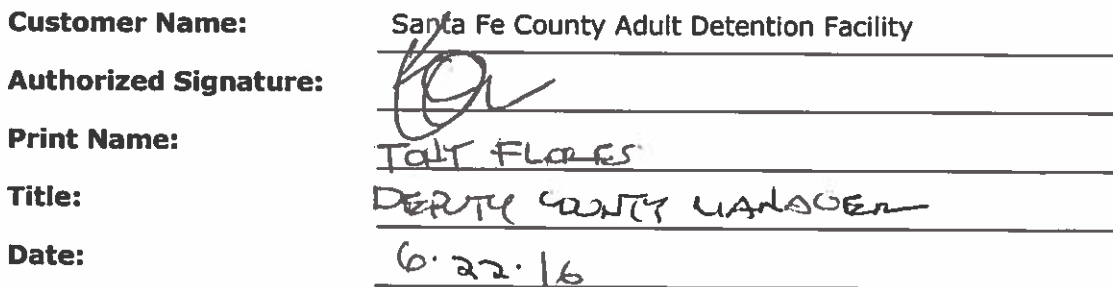 Customer Name: Santa Fe County Adult Detention Facility
Authorized Signature:
Print Name: TONY FLORES
Title: DEPUTY COUNTY MANAGER
Date: 6.22.16